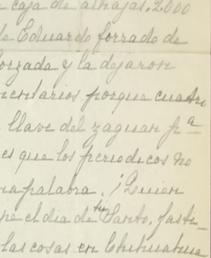 caja de alhajas, 2000
de Eduardo forrado de
forzada y la dejaron
porque cuatro
llave del zaguan pª
es que los periodicos no
palabra. ¡Quien
el dia de tu Santo,
las cosas en Chihuahua